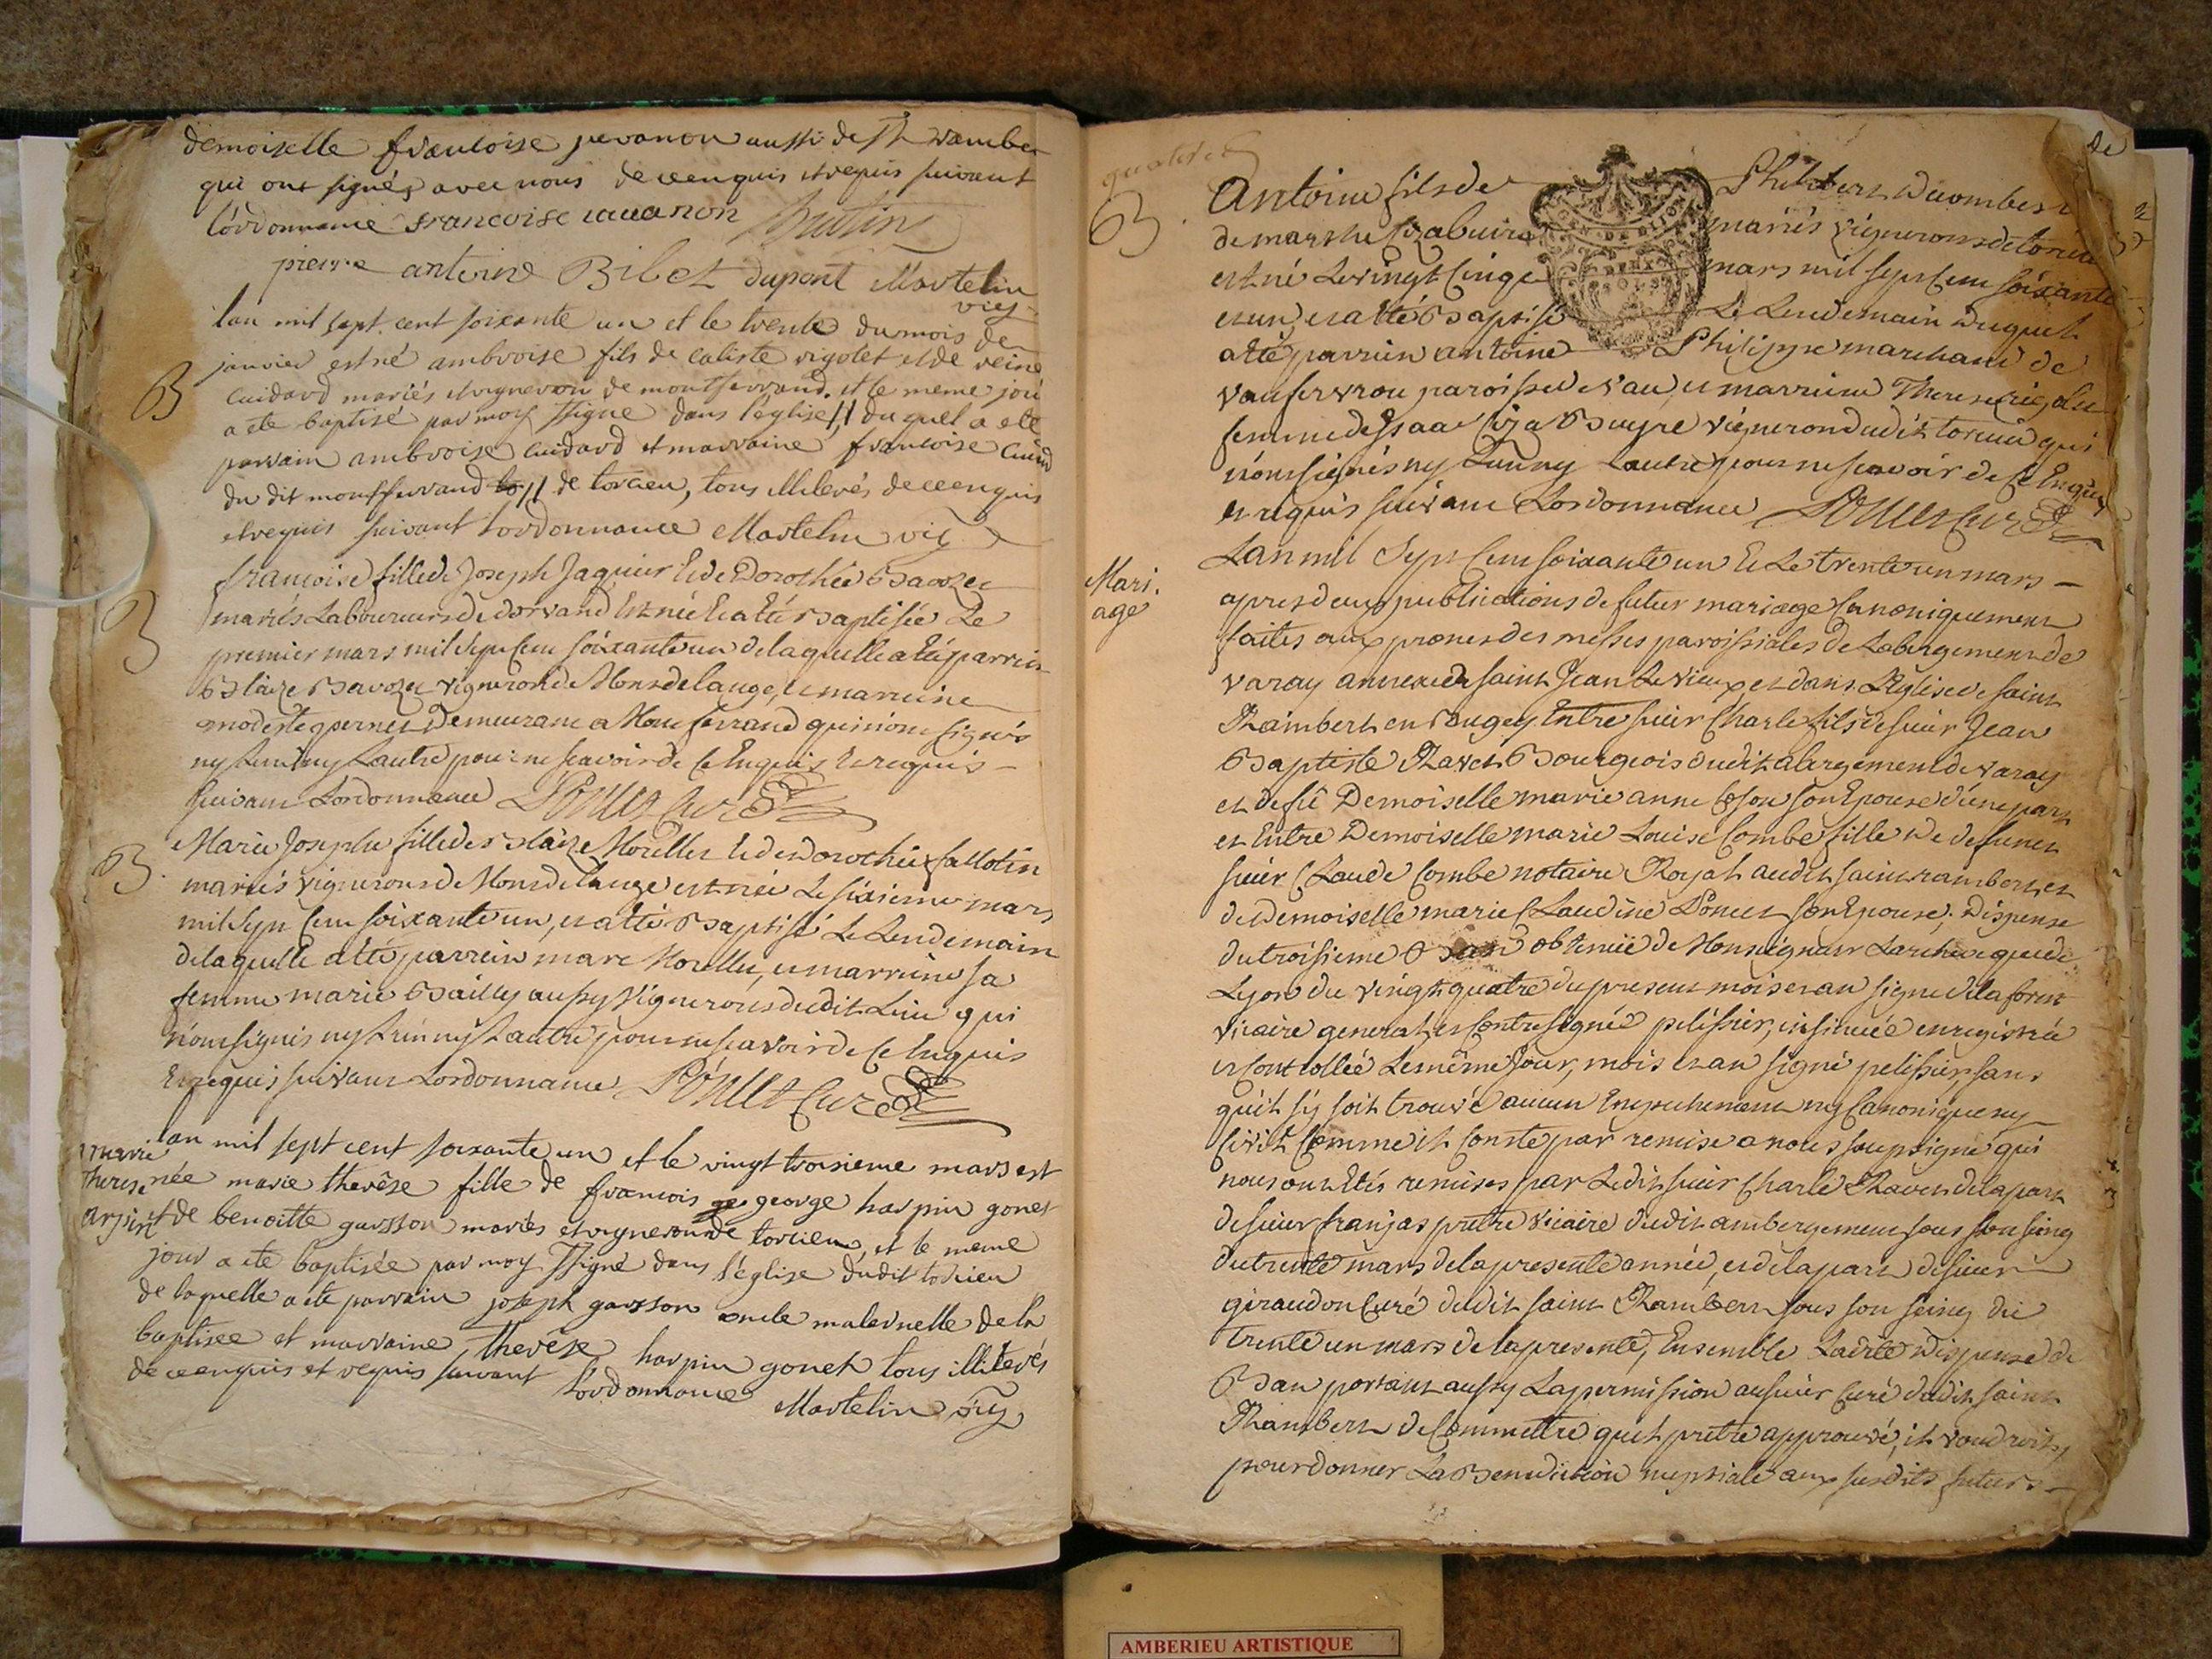 demoiselle francoise juvanon aussi de St Rambert
qui ont signés avec nous de ce enquis et requis suivant
l'ordonnance francoise
pierre antoine Bilet dupont Martelin
vic
lan mil sept cent soixante un et le trente du mois de
janvier est né ambroise fils de caliste rigolet et de reine
cuidard mariés et vigneron de montferrand. et le meme jour
a ete baptisé par moy ssigné dans l'eglise // du quel a ete
parrain ambroise cuidard et marraine francoise
du dit montferrand // de torcieu, tous illiterés de ce enquis
et requis suivant lordonnance Martelin vic
B
francoise fille de Joseph Jaquier Et de Dorothée Bavozet
mariés Laboureurs de dorvand Est née Et a Eté Baptisée Le
premier mars mil sept Cent soixante un de laquelle a Eté parrein
Blaize Bavozet vigneron de Mont de lange, et marreine
modeste pernet Demeurant a Montferrand qui nont signés
ny Lun ny Lautre pour ne scavoir de Ce Enquis Et requis
suivant Lordonnance Poncet Curé
B
Marie Josephe fille de Blaize Morellet Et de Dorothée Callotin
mariés vignerons de Mont de lange est née Le sixieme mars
mil sept Cent soixante un, et a eté Baptisé Le Lendemain
de laquelle a eté parrein marc Morellet, et marreine sa
femme marie Bailly aussy vignerons dudit Lieu qui
n'ont signés ny Lun ny Lautre pour ne scavoir de Ce Enquis
Et requis suivant Lordonnance Poncet Curé
B.
lan mil sept cent soixante un et le vingt troisieme mars est
née marie therèse fille de francois george harpin gonet
et de benoitte garsson mariés et vigneron de torcieu, et le meme
jour a ete baptisée par moy ssigné dans l'église dudit torcieu
de laquelle a ete parrain joseph garsson oncle maternelle de la
baptisee et marraine therèse harpin gonet tous illiterés
de ce enquis et requis suivant lordonnance Martelin vic
marie
therese
B
Antoine fils de Philibert Ducombet
de marthe Cizabuire mariés vignerons de torcieu
est né Le vingt Cinq mars mil sept Cent soixante
et un, et a eté Baptisé Le Lendemain Duquel
a eté parrein antoine Philippe marchand de
femme d'Isaac Ciza Buyre vigneron dudit torcieu qui
n'ont signés ny Lun ny Lautre pour ne scavoir de Ce Enquis
et requis suivant Lordonnance Poncet Curé
Mari.
age
Lan mil Sept Cent soixante un Et Le trente un mars
apres deux publications de futur mariage Canoniquement
faites aux prones des messes paroissiales de Labergement de
varay annexe de saint Jean Le vieux et dans L'Eglise de saint
Rambert en Bugey Entre sieur Charle fils de sieur Jean
Baptiste Ravet Bourgeois dudit abergement de varay
et de fût Demoiselle marie anne son Epouse d'une part
et Entre Demoiselle marie Louise Combe fille De defunct
sieur Claude Combe notaire Royal audit saint rambert, et
de Demoiselle marie Claudine Poncet son Epouse; Dispense
du troisieme Ban obtenüe de Monseigneur Larcheveque de
Lyon du vingt quatre du present mois et an signé De la forest
vicaire general, et Contresigné pelissier, insinuée enregistrée
et Controllée Le même Jour, mois et an signé pelissier, sans
qu'il s'y soit trouvé aucun Empechement ny Canonique ny
Civil Comme il Conste par remise a nous soussigné qui
nous ont Etés remises par Ledit sieur Charle Ravet de la part
de sieur franjas pretre vicaire dudit ambergement sous son seing
du trente mars de la presente année, et de la part de sieur
giraudon Curé dudit saint Rambert sous son seing du
trente un mars de la presente, Ensemble Ladite Dispense de
Ban portant aussy La permission au sieur Curé dudit saint
Rambert de Commettre quel pretre approuvé, il voudroit,
pour donner La Benediction nuptiale aux susdits futurs
AMBERIEU ARTISTIQUE